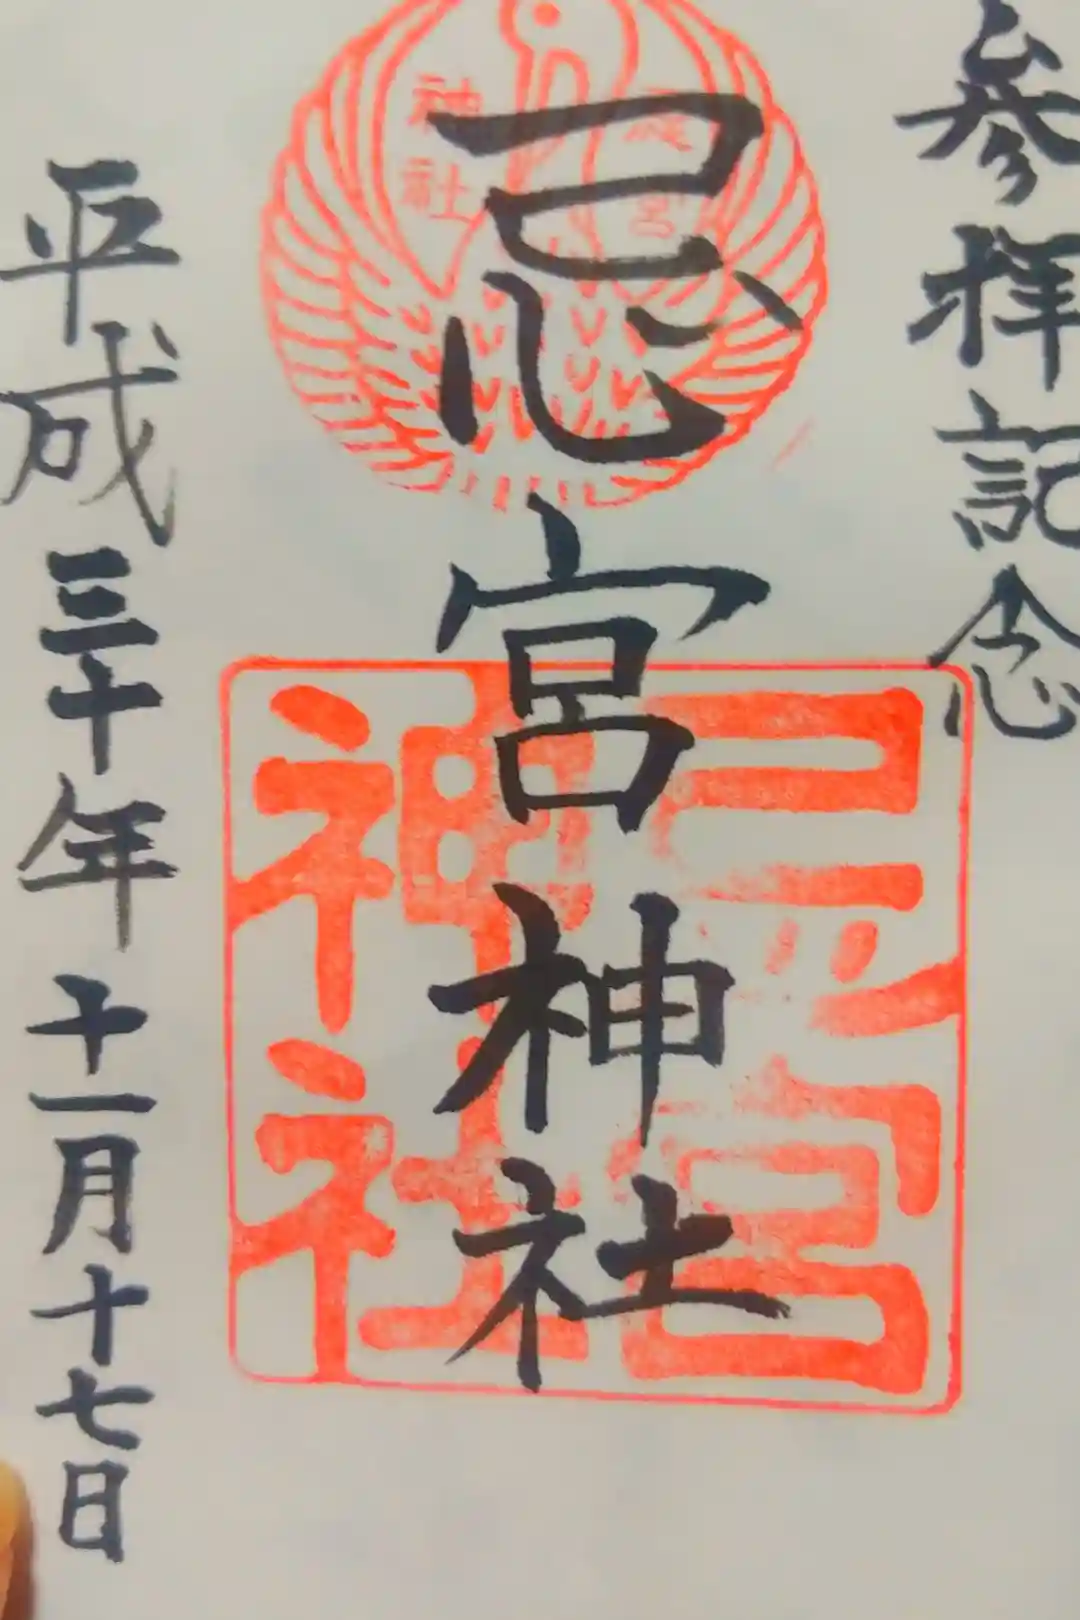 参拝記念
忌宮神社
忌宮
神社
忌宮
神社
平成三十年十一月十七日